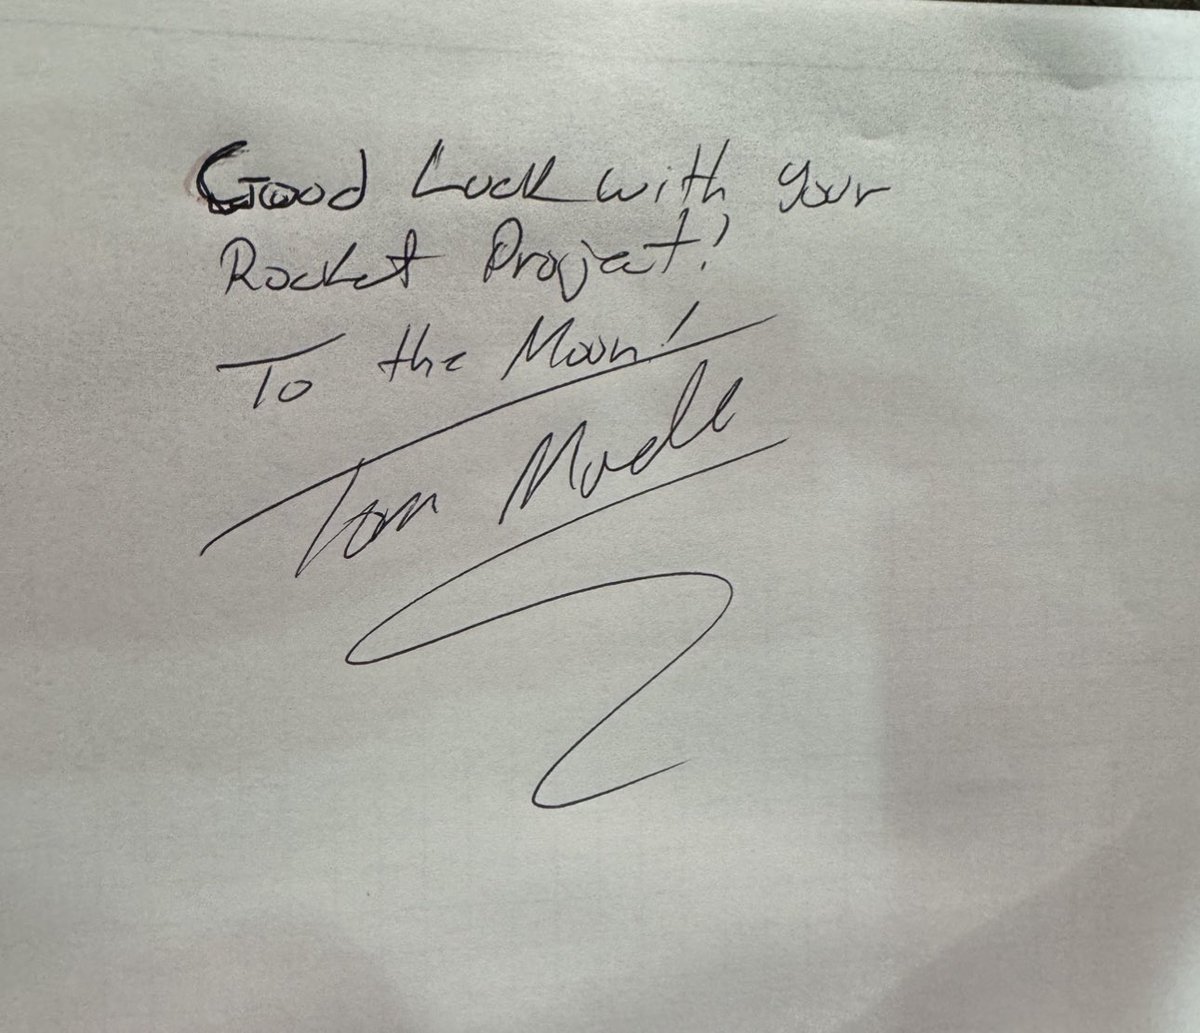 Good Luck with your
Rocket Project!
To the Moon!
Tom